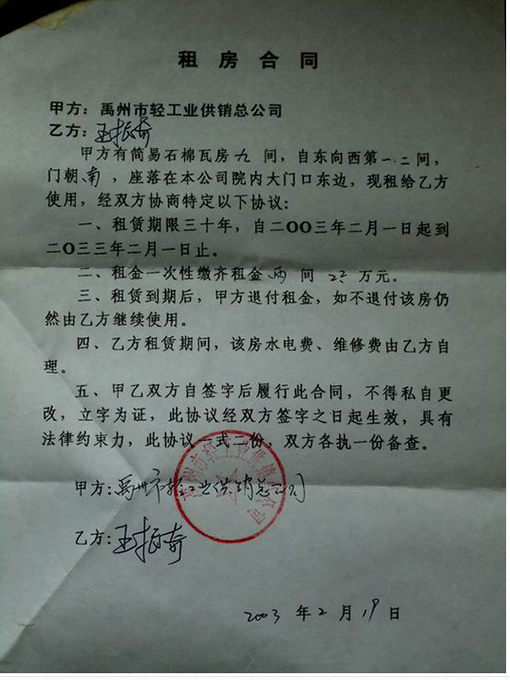 租房合同
甲方：禹州市轻工业供销总公司
乙方：王振奇
甲方有简易石棉瓦房九间，自东向西第一.二间，
门朝南，座落在本公司院内大门口东边，现租给乙方
使用，经双方协商特定以下协议：
一、租赁期限三十年，自二OO三年二月一日起到
二O三三年二月一日止。
二、租金一次性缴齐租金两间 万元。
三、租赁到期后，甲方退付租金，如不退付该房仍
然由乙方继续使用。
四、乙方租赁期间，该房水电费、维修费由乙方自
理。
五、甲乙双方自签字后履行此合同，不得私自更
改，立字为证，此协议经双方签字之日起生效，具有
法律约束力，此协议一式二份，双方各执一份备查。
甲方：禹州市轻工业供销总公司
禹州市轻工业供销总公司
乙方：王振奇
2003年2月19日